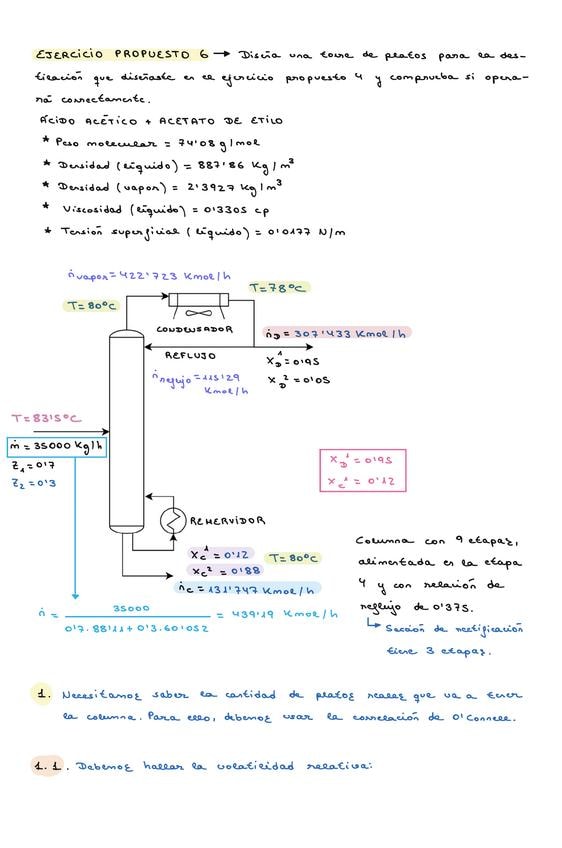 EJERCICIO PROPUESTO 6 → Diseña una torre de platos para la des-
tilación que diseñaste en el ejercicio propuesto 4 y comprueba si opera-
rá correctamente.
ÁCIDO ACÉTICO + ACETATO DE ETILO
* Peso molecular = 74'08 g/mol
* Densidad (líquido) = 887'86 Kg/m³
* Densidad (vapor) = 2'3927 Kg/m³
* Viscosidad (líquido) = 0'3305 cp
* Tensión superficial (líquido) = 0'0177 N/m
ṅvapor = 422'723 Kmol/h
T = 78°C
T = 80°C
CONDENSADOR
ṅD = 307'433 Kmol/h
REFLUJO
XD¹ = 0'95
XD² = 0'05
ṅreflujo = 115'29
Kmol/h
T = 83'5°C
ṁ = 35000 Kg/h
Z₁ = 0'7
Z₂ = 0'3
XD¹ = 0'95
XC¹ = 0'12
REHERVIDOR
XC¹ = 0'12
T = 80°C
XC² = 0'88
ṅC = 131'747 Kmol/h
Columna con 9 etapas,
alimentada en la etapa
4 y con relación de
reflujo de 0'375.
↳ Sección de rectificación
tiene 3 etapas.
ṅ = 35000 / 0'7·88'11 + 0'3·60'052 = 439'19 Kmol/h
1. Necesitamos saber la cantidad de platos reales que va a tener
la columna. Para ello, debemos usar la correlación de O'Connell.
1.1. Debemos hallar la volatilidad relativa: